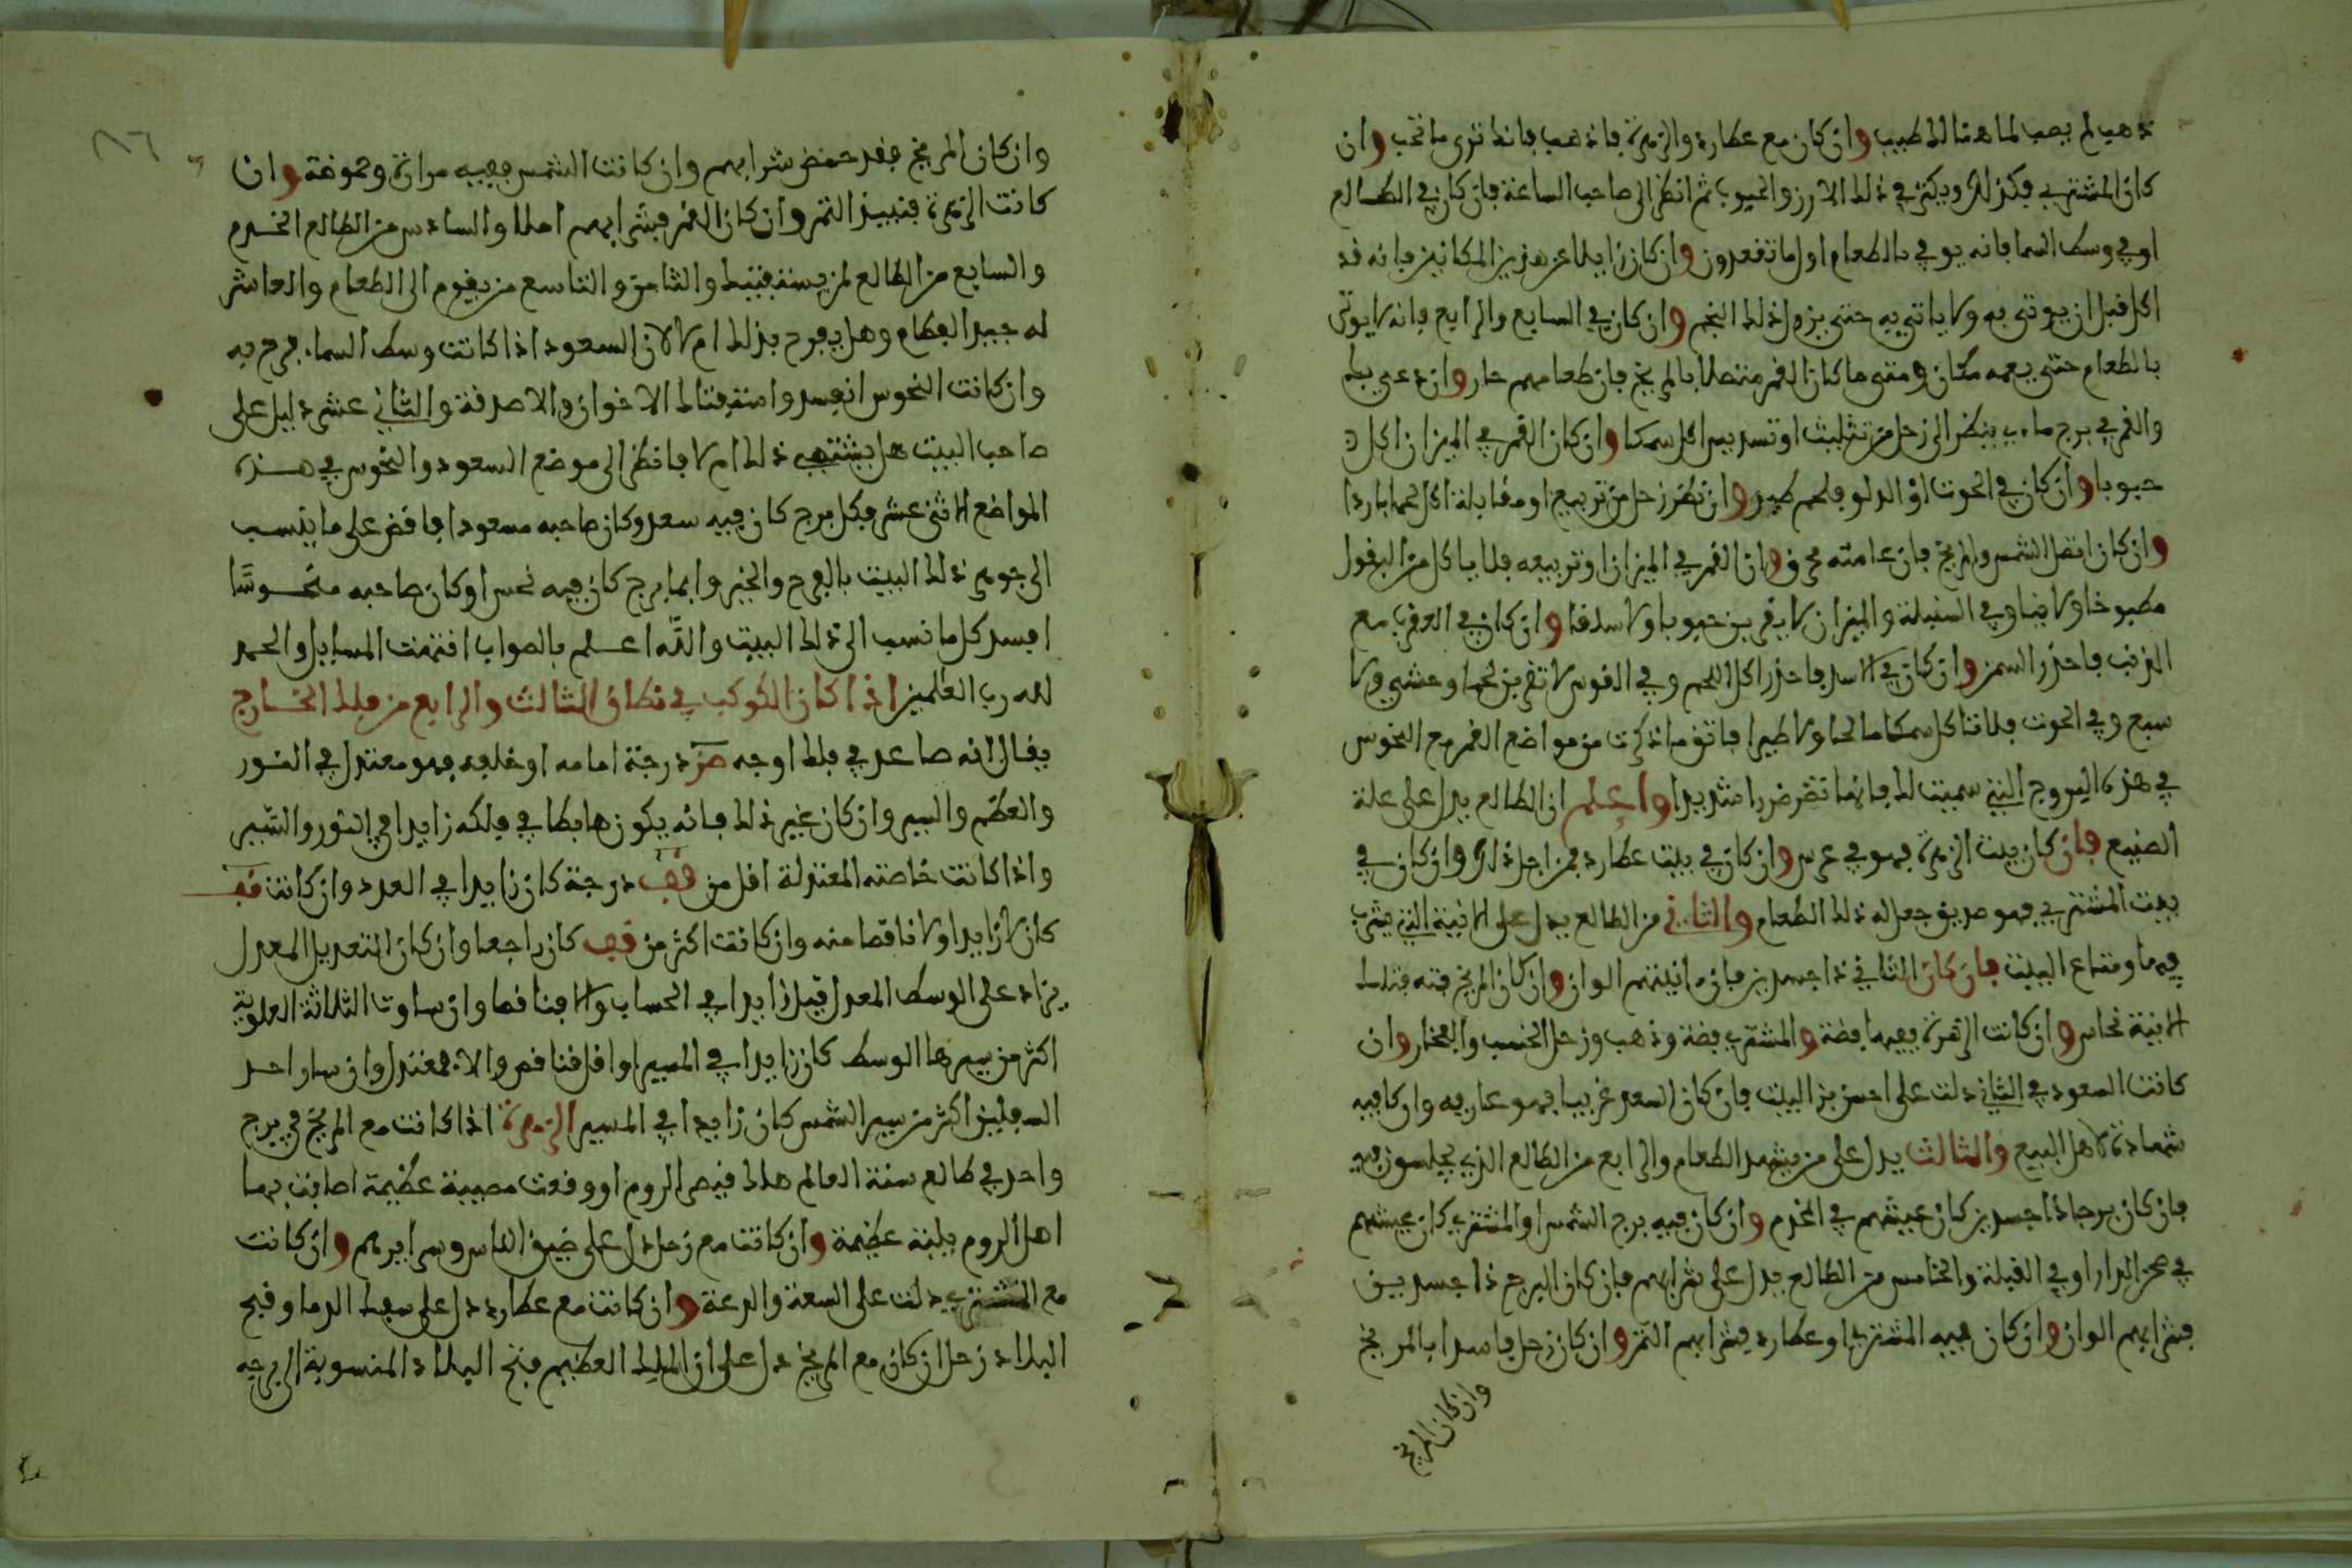 ذهب لم يصب لما هنالك طبيب وان كان مع عطارد والزهرة فاذهب فانك ترى ما تحب وان
كان المشتري فكذلك ويكثر في ذلك الارز والحبوب ثم انظر الى صاحب الساعة فان كان في الطالع
او في وسط السما فانه يوتى بالطعام اول ما تقعدون وان كان زايلا عن هذين المكانين فانه قد
اكل قبل ان يوتى به ولا ياتي به حتى يزول ذلك النجم وان كان في السابع والرابع فانه لا يوتى
بالطعام حتى يعمه مكان ومتى ما كان القمر متصلا بالمريخ فان طعامهم حار وان دعي
والقمر في برج ماءي ينظر الى زحل من تثليث او تسديس اكل سمكا وان كان القمر في الميزان اكل
حبوبا وان كان في الحوت او الدلو فلحم طير وان نظر زحل من تربيع او مقابلة اكل لحما باردا
وان كان اتصل الشمس والمريخ فان عامته محرق وان القمر في الميزان او تربيعه فلا ياكل من البقول
مطبوخا ولا نيا وفي السنبلة والميزان لا يقربن حبوبا ولا سلقا وان كان في العقرب مع
الذنب فاحذر السمن وان كان في الاسد فاحذر اكل اللحم وفي القوس لا تقربن لحما وحشي ولا
سبع وفي الحوت فلا تاكل سمكا مالحا ولا طيرا فاتق ما ذكرت من مواضع القمر مع النحوس
في هذه البروج التي سميت لك فانها تضر ضررا شديدا واعلم ان الطالع يدل على علة
الصنيع فان كان بيت الزهرة فهو في عرس وان كان في بيت عطارد فمن اجل ذلك وان كان في
بيت المشتري فهو صديق جعل له ذلك الطعام والثاني من الطالع يدل على الانية التي يشرب
فيها ومتاع البيت فان كان الثاني ذا جسدين فان انيتهم الوان وان كان المريخ فيه فتلك
الانية نحاس وان كانت الزهرة ففيها فضة والمشتري فضة وذهب وزحل الخشب والفخار وان
كانت السعود في الثاني دلت على احسن بز البيت فان كان السعد غريبا فهو عاريه وان كان فيه
شهادة لاهل البيع والثالث يدل على من يشهد الطعام والرابع من الطالع الذي يجلسون فيه
فان كان برجا ذا جسدين كان عيشهم في الخدم وان كان فيه برج الشمس او المشتري كان عيشهم
في صحن الدار او في القبلة والخامس من الطالع يدل على شرابهم فان كان البرج ذا جسدين
فشرابهم الوان وان كان فيه المشتري او عطارد فشرابهم التمر وان كان زحل فاسدا بالمريخ
وان كان المريخ
وان كان المريخ فقد حمض شرابهم وان كانت الشمس ففيه مرارة وحموضة وان
كانت الزهرة فنبيذ التمر وان كان القمر فشرابهم املا والسادس من الطالع الخدم
والسابع من الطالع لمن يستفتيك والثامن والتاسع من يقوم الى الطعام والعاشر
له جيد العظام وهل يفرح بذلك ام لا لان السعود اذا كانت وسط السماء فرح به
وان كانت النحوس انفسد وامتقتا لك الاخوان والاصدقة والثاني عشر دليل على
صاحب البيت هل يشتهي ذلك ام لا فانظر الى موضع السعود والنحوس في هذه
المواضع الاثني عشر فكل برج كان فيه سعد وكان صاحبه مسعودا فاقض على ما ينسب
الى جوهر ذلك البيت بالفرح والخير وايما برج كان فيه نحس او كان صاحبه منحوسا
افسد كل ما نسب الى ذلك البيت والله اعلم بالصواب انتهت المسايل والحمد
لله رب العلمين اذا كان الكوكب في نطاق الثالث والرابع من فلك الخارج
يقال انه صاعد في فلك اوجه صز درجة امامه او خلفه فهو معتدل في النور
والعظم والسير وان كان غير ذلك فانه يكون هابطا في فلكه زايدا في النور والسير
واذا كانت خاصته المعتدلة اقل من قف درجة كان زايدا في العدد وان كانت قف
كان لا زايدا ولا ناقصا منه وان كانت اكثر من قف كان راجعا وان كان التعديل المعدل
يزاد على الوسط المعدل قيل زايدا في الحساب والا فناقصا وان ساوت الثلاثة العلوية
اكثر من سيرها الوسط كان زايدا في المسير او اقل فناقص والا فمعتدل وان سار احد
السفليين اكثر من سير الشمس كان زايدا في المسير الزهرة اذا كانت مع المريخ في برج
واحد في طالع سنة العالم هلك قيصر الروم او وقعت مصيبة عظيمة اصابت بها
اهل الروم بلية عظيمة وان كانت مع زحل دل على ضيق الناس وسرايرهم وان كانت
مع المشتري دلت على السعة والدعة وان كانت مع عطارد دل على سفك الدما وفتح
البلاد زحل ان كان مع المريخ دل على ان الملك العظيم فتح البلاد المنسوبة الى برجه